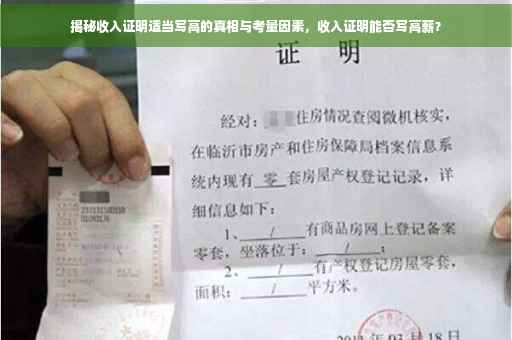 揭秘收入证明适当写高的真相与考量因素，收入证明能否写高薪？
证 明
经对：住房情况查阅微机核实，
在临沂市房产和住房保障局档案信息系
统内现有 零 套房屋产权登记记录，详
细信息如下：
1、 / 有商品房网上登记备案
零套，坐落位于： / ；
2、 / 有产权登记房屋零套，
面积： / 平方米。
03月18日